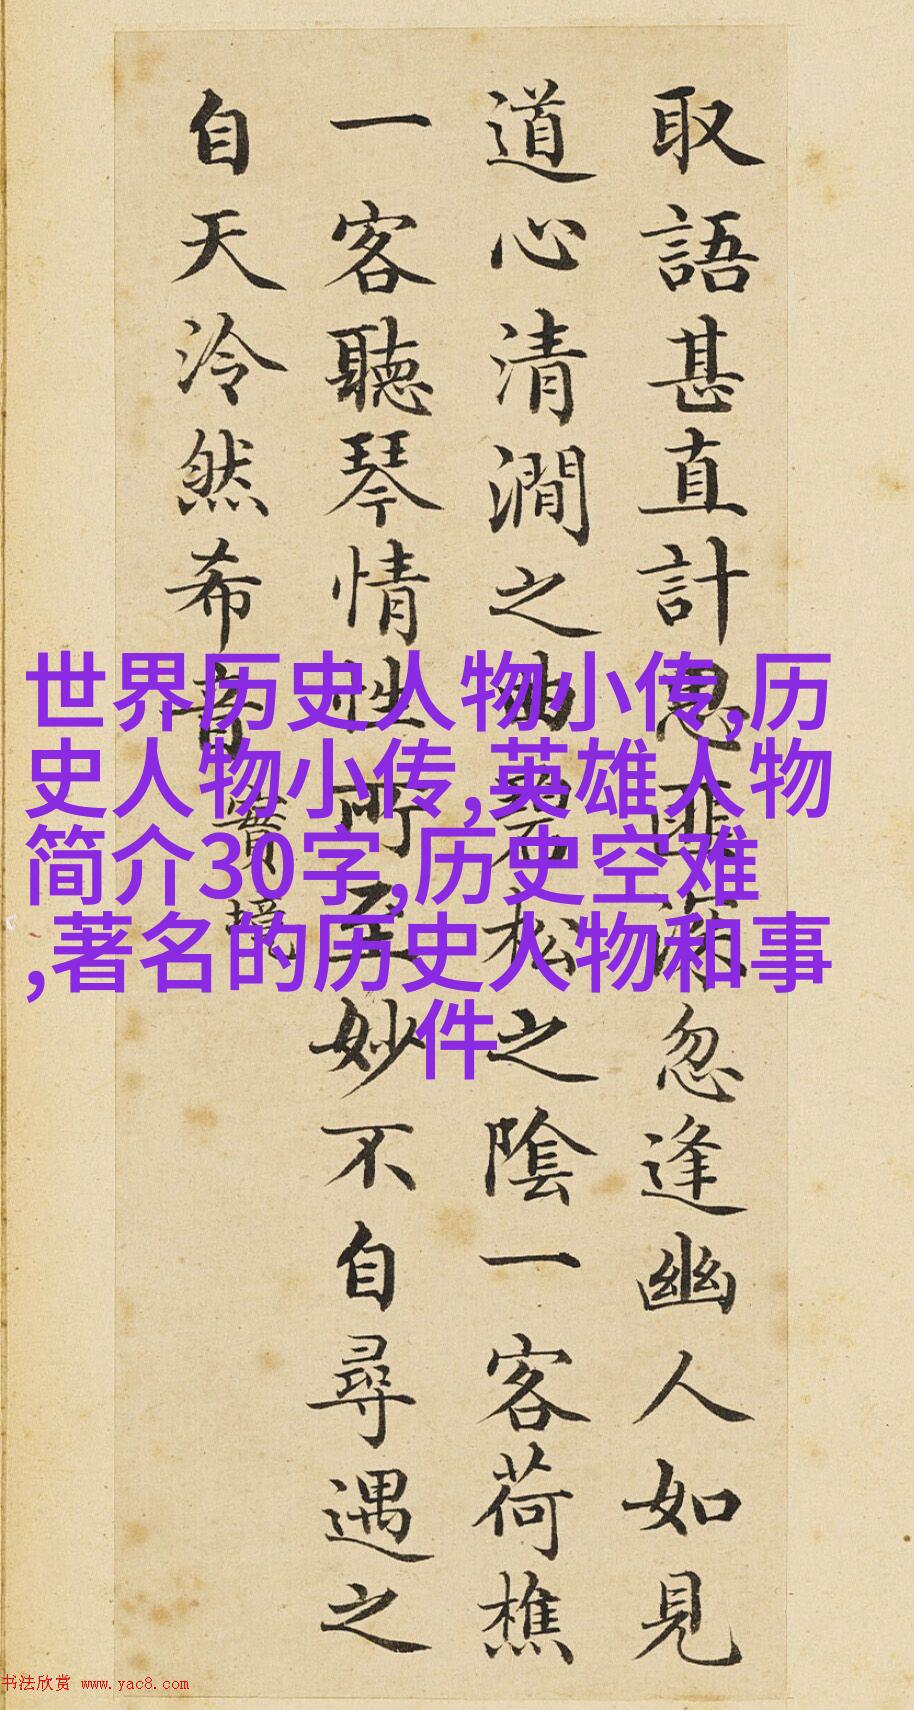 取語甚直計思匪深忽逢幽人如見
道心清澗之曲碧松之陰一客荷樵
一客聽琴情性所至妙不自尋遇之
自天泠然希音
實境
世界历史人物小传,历
史人物小传,英雄人物
简介30字,历史空难
,著名的历史人物和事
件
书法欣赏 www.yac8.com